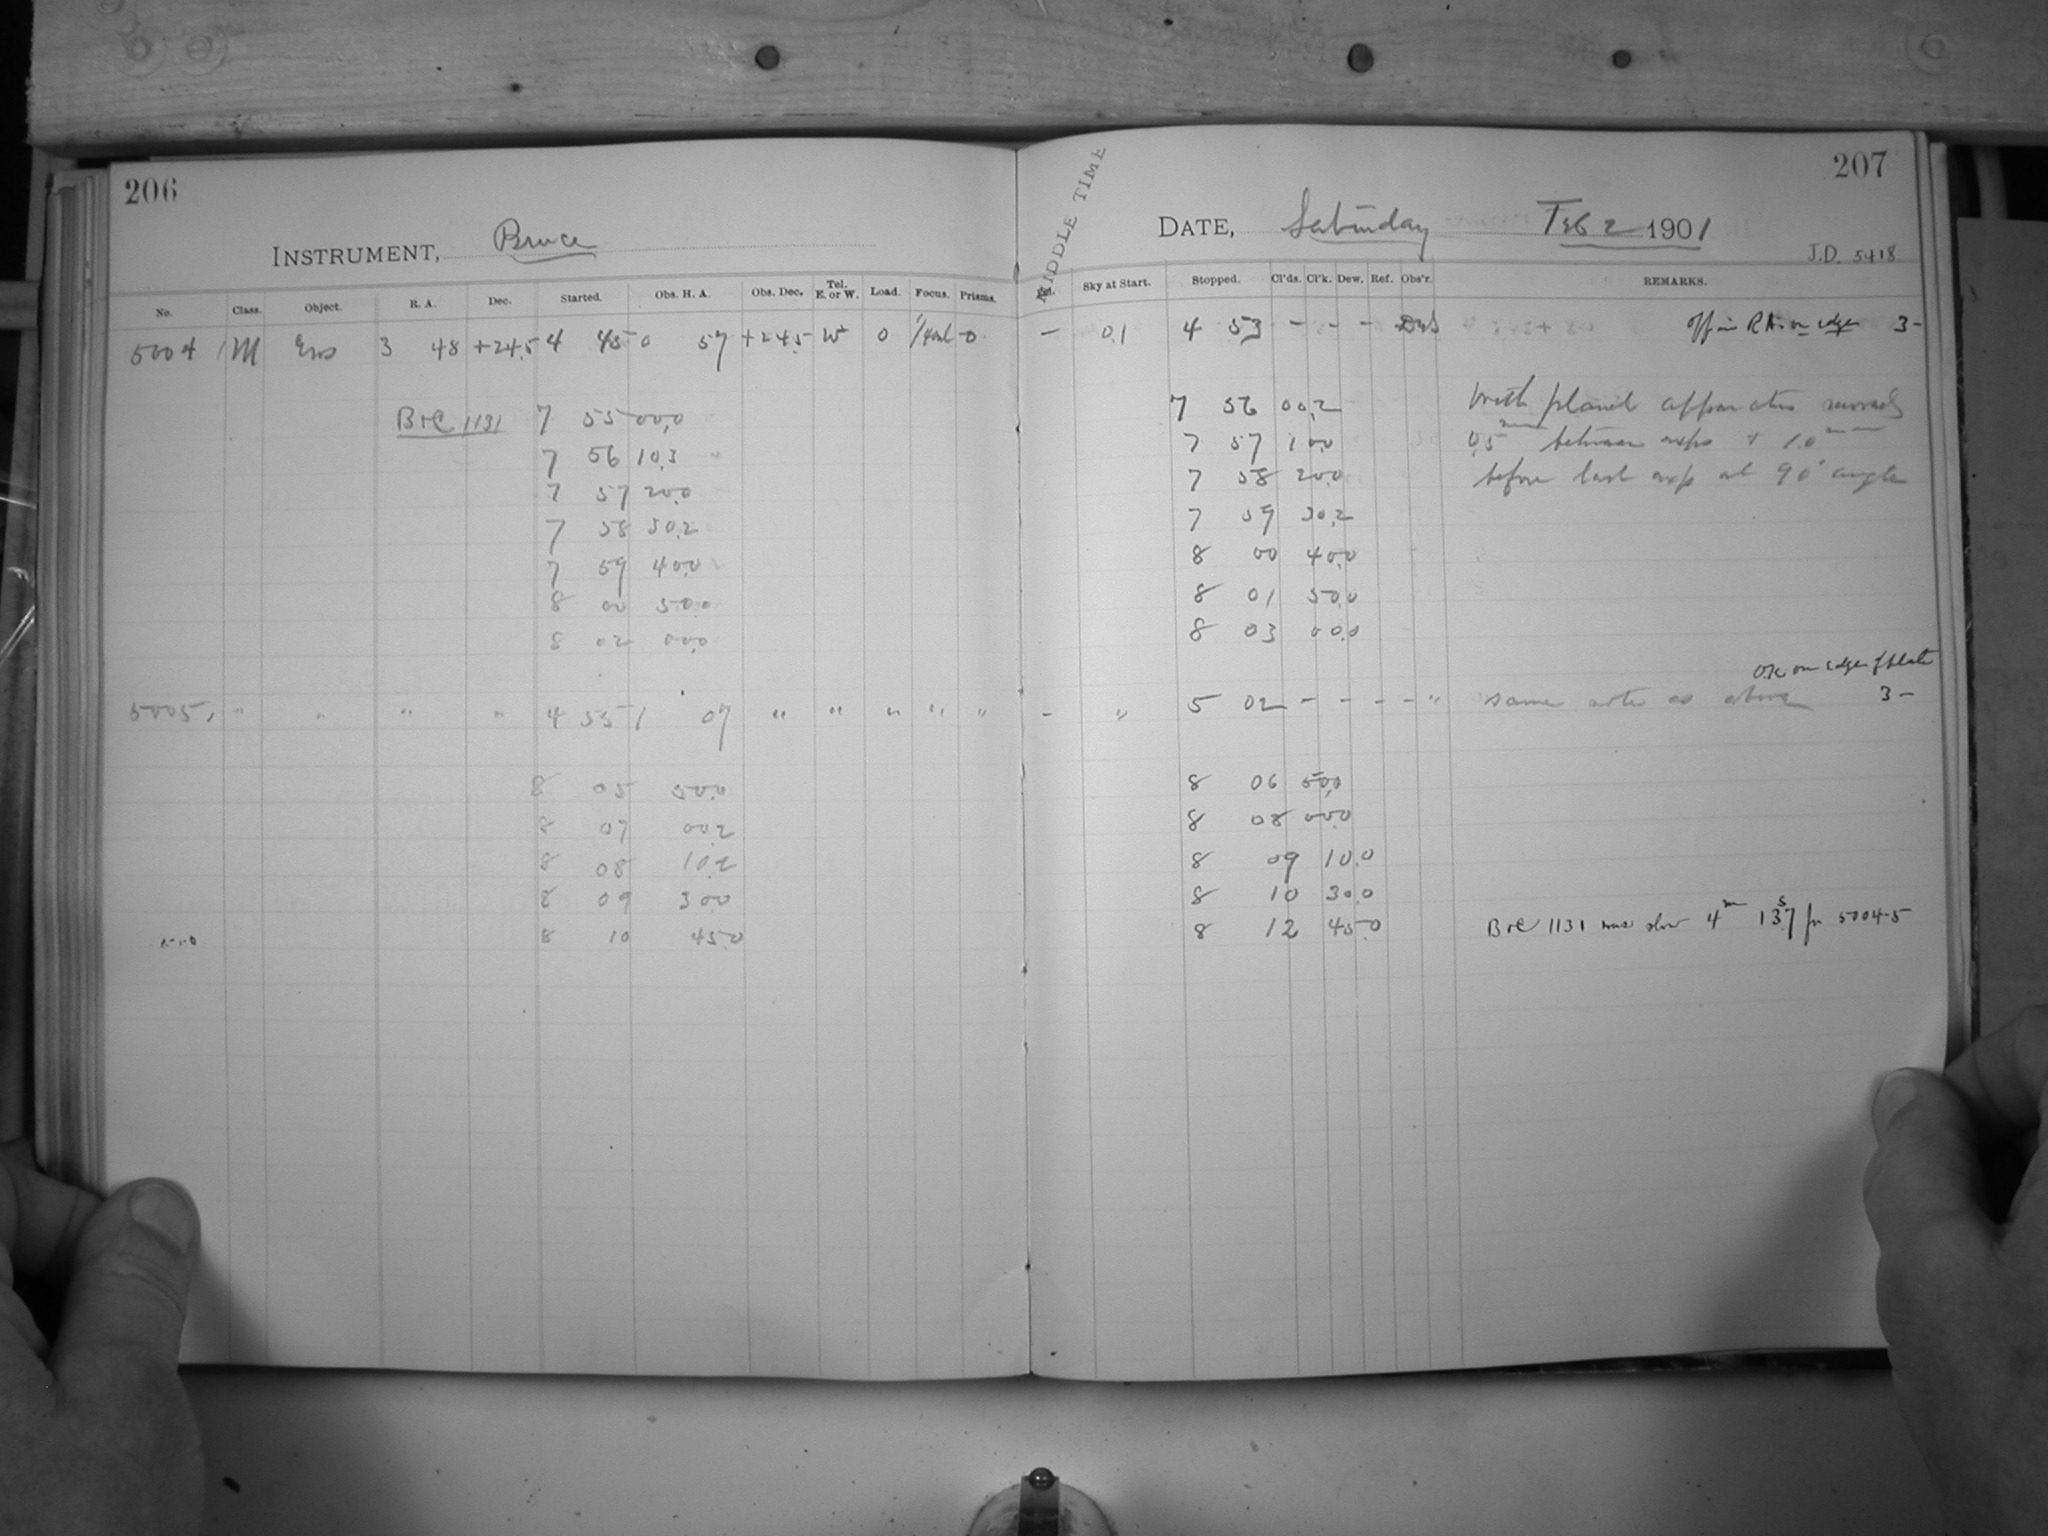 206
INSTRUMENT, Bruce
No. Class. Object. R. A. Dec. Started. Obs. H. A. Obs. Dec. Tel. E. or W. Load. Focus. Prisms.
5004 M Eros 3 48 +24.5 4 45 0 57 +24.5 W 0 0
B+C 1131 7 55 00.0
7 56 10.3
7 57 20.0
7 58 30.2
7 59 40.0
8 00 50.0
8 02 00.0
5005 " " " " 4 55 1 07 " " " " "
8 05 50.0
8 07 00.2
8 08 10.2
8 09 30.0
8 10 45.0
207
MIDDLE TIME
DATE, Saturday Feb 2 1901
J.D. 5418
Sky at Start. Stopped. Cl'ds. Cl'k. Dew. Ref. Obs'r. REMARKS.
– 0.1 4 53 – – – off in R.A. on edge 3–
7 56 00.2 With planet apparatus moved
7 57 10.0 0.5 mm between exps + 1.0 mm
7 58 20.0 before last exp at 90° angle
7 59 30.2
8 00 40.0
8 01 50.0
8 03 00.0
OK on edge of plate
– " 5 02 – – – – " same notes as above 3–
8 06 50.0
8 08 00.0
8 09 10.0
8 10 30.0
8 12 45.0 B+C 1131 was slow 4m 13.7s for 5004-5